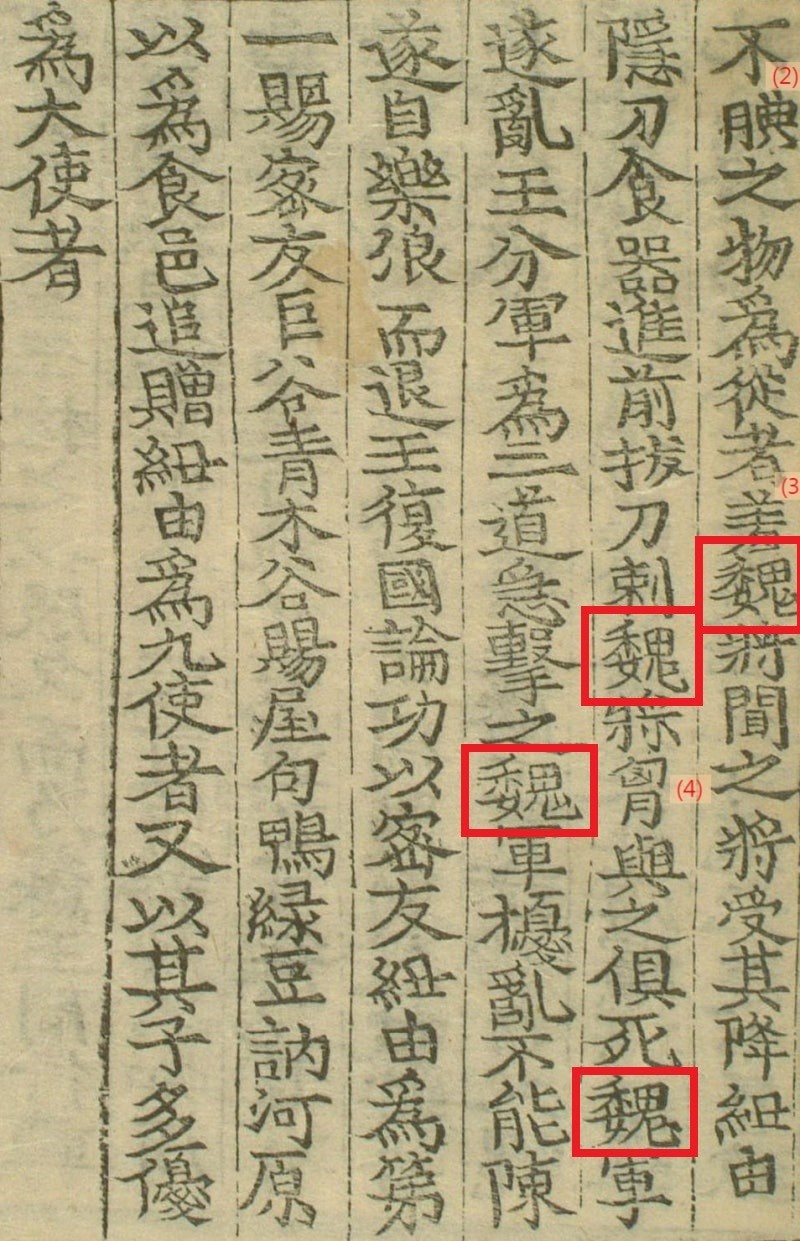 不(2)腆之物爲從者(3羞魏將聞之將受其降紐由
隱刀食器進前拔刀刺魏將胷(4)與之俱死魏軍
遂亂王分軍爲三道急擊之魏軍擾亂不能陳
遂自樂浪而退王復國論功以密友紐由爲第
一賜密友巨谷青木谷賜屋句鴨緑豆訥河原
以爲食邑追贈紐由爲九使者又以其子多優
爲大使者